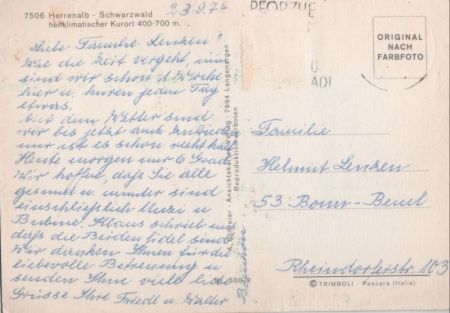 7506 Herrenalb - Schwarzwald
heilklimatischer Kurort 400-700 m.
23.9.74
Liebe Familie Lenzen!
Wie die Zeit vergeht, nun
sind wir schon 1 Woche
hier u. kuren jeden Tag
etwas.
Mit dem Wetter sind
wir bis jetzt auch zufrieden
nur ist es schon recht kalt
Heute morgen nur 6 Grad
Wir hoffen, daß Sie alle
gesund u. munter sind
einschließlich Muzi u
Bubine. Klaus schrieb uns
daß die Beiden fidel sind
Wir danken Ihnen für die
liebevolle Betreuung u
senden Ihnen viele liebe
Grüsse Ihre Friedl u. Walter
Ansichtskartenverlag - 7994 Langenargen
Reproduktion verboten
ORIGINAL
NACH
FARBFOTO
Familie
Helmut Lenzen
53 Bonn-Beuel
Rheindorferstr. 103
© TRIMBOLI - Pescara (Italia)